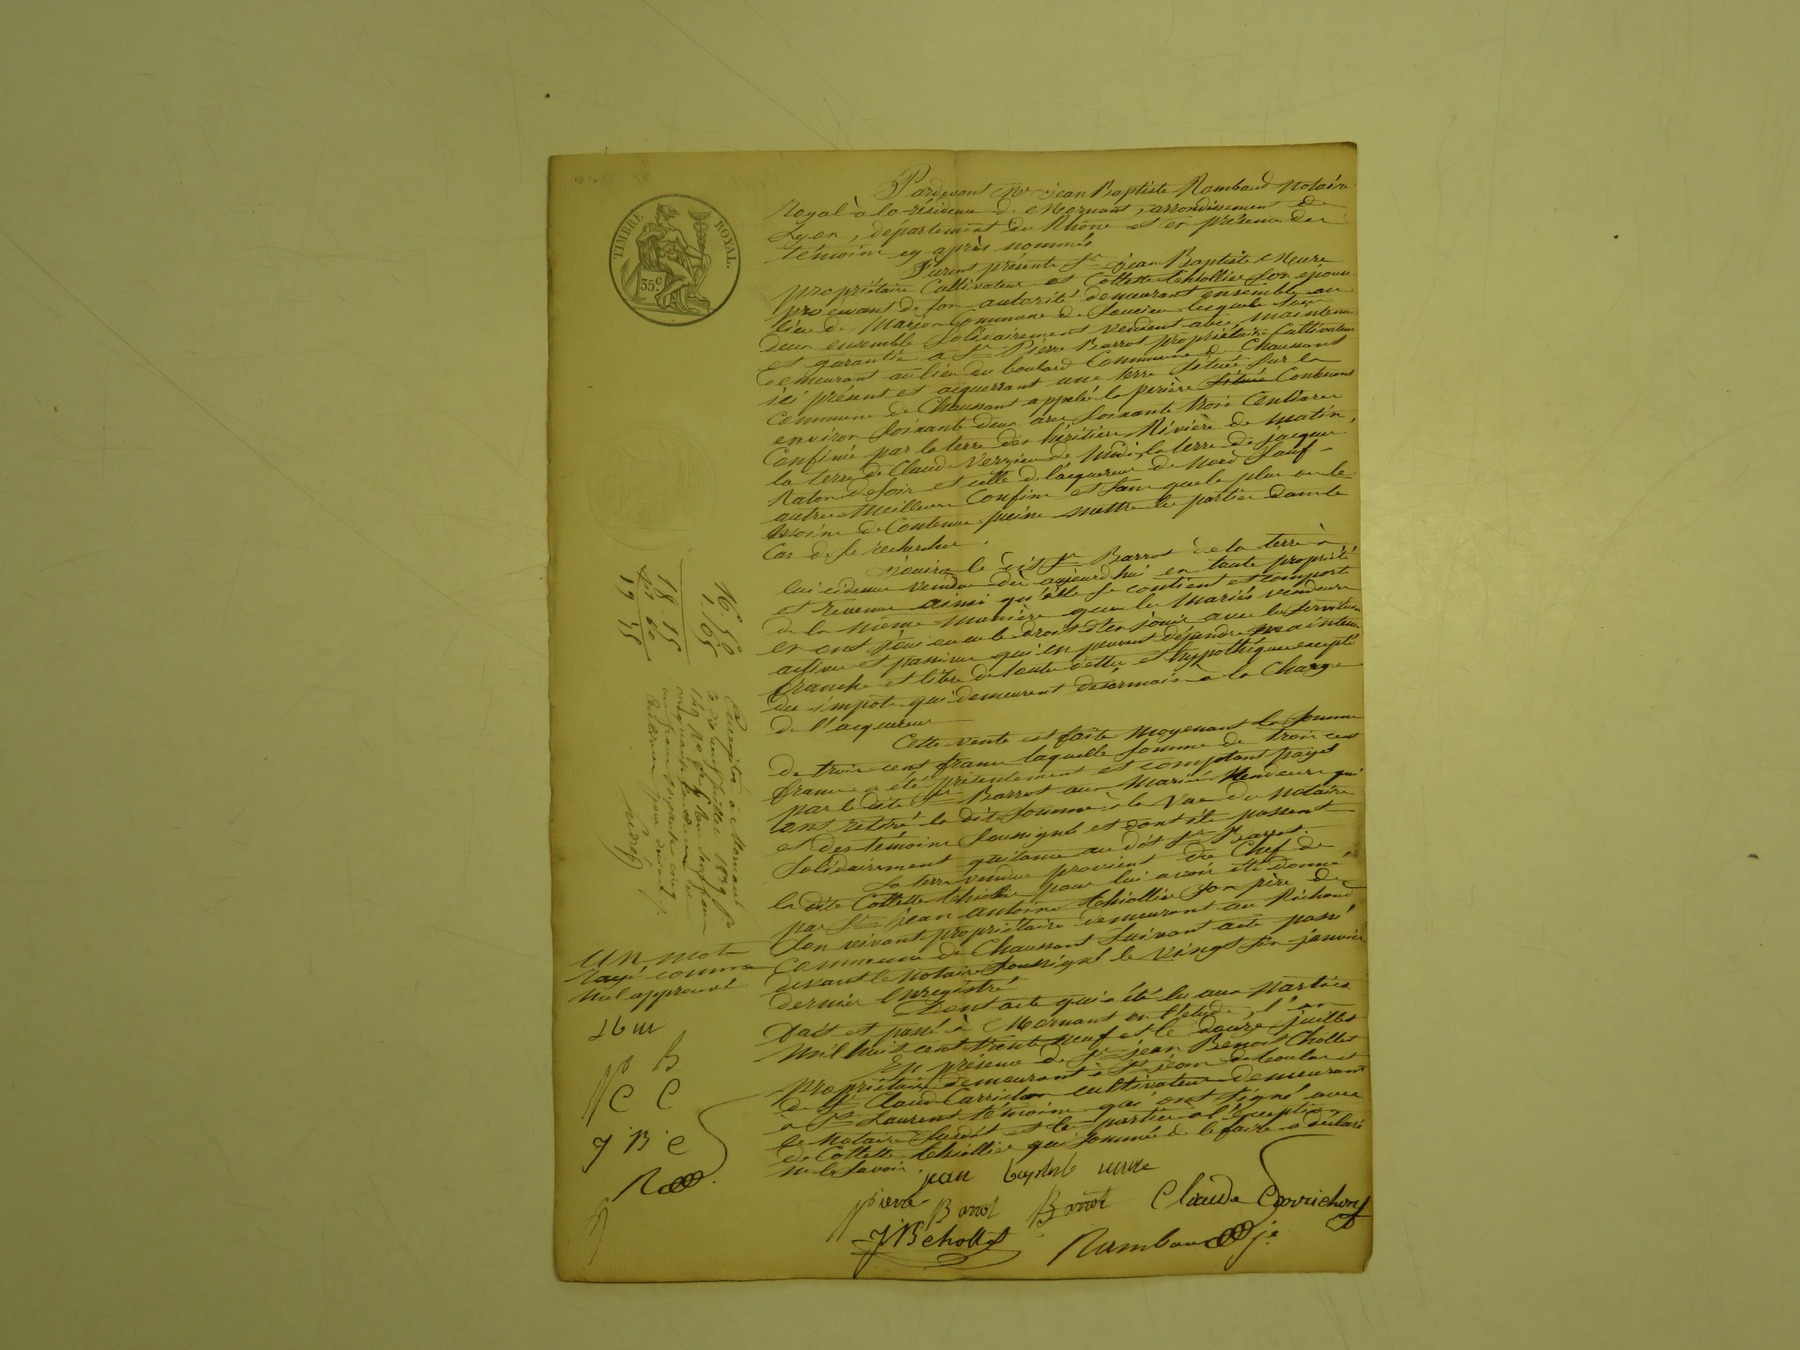 TIMBRE ROYAL.
35c
Pardevant Me jean Baptiste Rambaud notaire
royal à la résidence de Mornant, arrondissement de
Lyon, departement du Rhône et en présence des
témoins cy après nommés
Furent présents Sr jean Baptiste Meure
propriétaire Cultivateur et Collette thiollier son épouse
procedant de son autorité demeurant ensemble au
lieu de Marjon Commune de Soucieu lesquels
deux ensemble solidairement vendent avec maintenue
et garantie à Sr Pierre Barrot propriétaire Cultivateur
demeurant au lieu du boulard Commune de Chaussant
ici présent et acquerrant une terre située sur la
commune de Chaussant appelé la perière située Contenant
environ soixante deux ares soixante trois Centiares
Confinée par la terre des héritiers Rivière de matin,
la terre de Claude Verzieu de midi, la terre de jacques
Raton de soir et celle de l'acquereur de Nord sauf
autres Meilleurs Confins et sans que le plus ou le
Moins de Contenue puisse mettre les parties dans le
Cas de se rechercher.
jouira le dit Sr Barrot de la terre à
lui cidessus vendue dès aujourdhui en toute propriété
et revenus ainsi qu'elle se contient et comporte
de la même manière que les mariés vendeurs
en ont joui ou eu le droit d'en jouir avec les servitudes
actives et passives qui en peuvent dépendre maintenue
franche et libre de toute dette et hypothèque excepté
des impots qui demeurent désormais à la Charge
de l'acquereur
Cette vente est faite moyenant la somme
de trois cent francs laquelle somme de trois cent
francs a été présentement et comptant payée
par le dit Sr Barrot aux Mariés Vendeurs qui
ont retiré la dite somme à la Vue du Notaire
et des témoins soussignés et dont ils passent
solidairement quitance au dit Sr Barrot.
La terre vendue provient du Chef de
la dite Collette thiollier pour lui avoir été donné
par Sr jean antoine thiollier son père de
son vivant propriétaire demeurant au Richoud
Commune de Chaussant suivant acte passé
devant le notaire soussigné le vingt six janvier
dernier Enregistré
Dont acte qui a été lu aux parties
fait et passé à Mornant en l'etude, l'an
Mil huit cent trente neuf et le douze juillet
En présence de Sr jean Benoit Chollet
propriétaire demeurant à St jean de toulas et
de Sr Claude Carrichon cultivateur demeurant
à St Laurent témoins qui ont signé avec
le Notaire susdit et les parties à l'Exception
de Collette thiollier qui sommée de le faire a déclaré
ne le savoir.
jean baptiste meure
pierre Barrot Barrot Claude Corrichon
JB chollet Rambaud
16 50
1. 65
18. 15
60
19 35
Enregistré à Mornant le
juillet 1839 fo
Un mot
rayé comme
nul approuvé
J b m
p B
C C
J B C
R